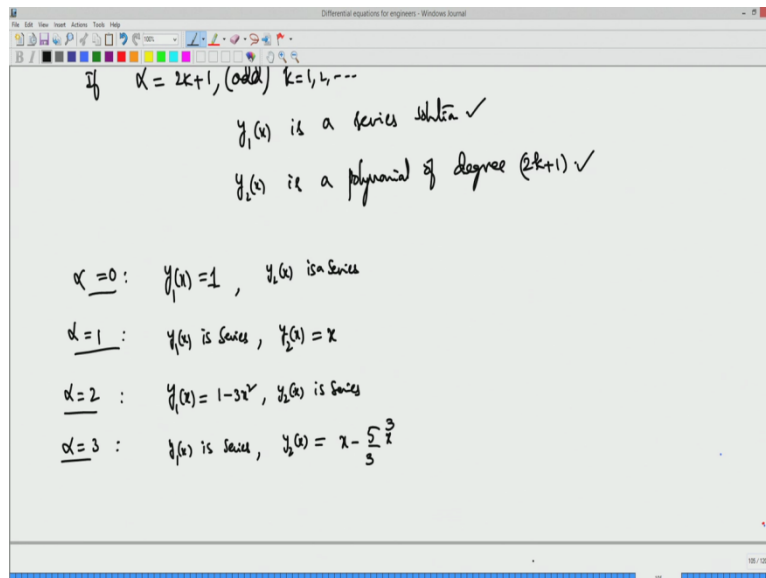 Differential equations for engineers - Windows Journal
File Edit View Insert Actions Tools Help
If α = 2k+1, (odd) k=1,2,---
y₁(x) is a series solution ✓
y₂(x) is a polynomial of degree (2k+1) ✓
α = 0 : y₁(x) = 1 , y₂(x) is a series
α = 1 : y₁(x) is series , y₂(x) = x
α = 2 : y₁(x) = 1-3x², y₂(x) is series
α = 3 : y₁(x) is series, y₂(x) = x - 5/3 x³